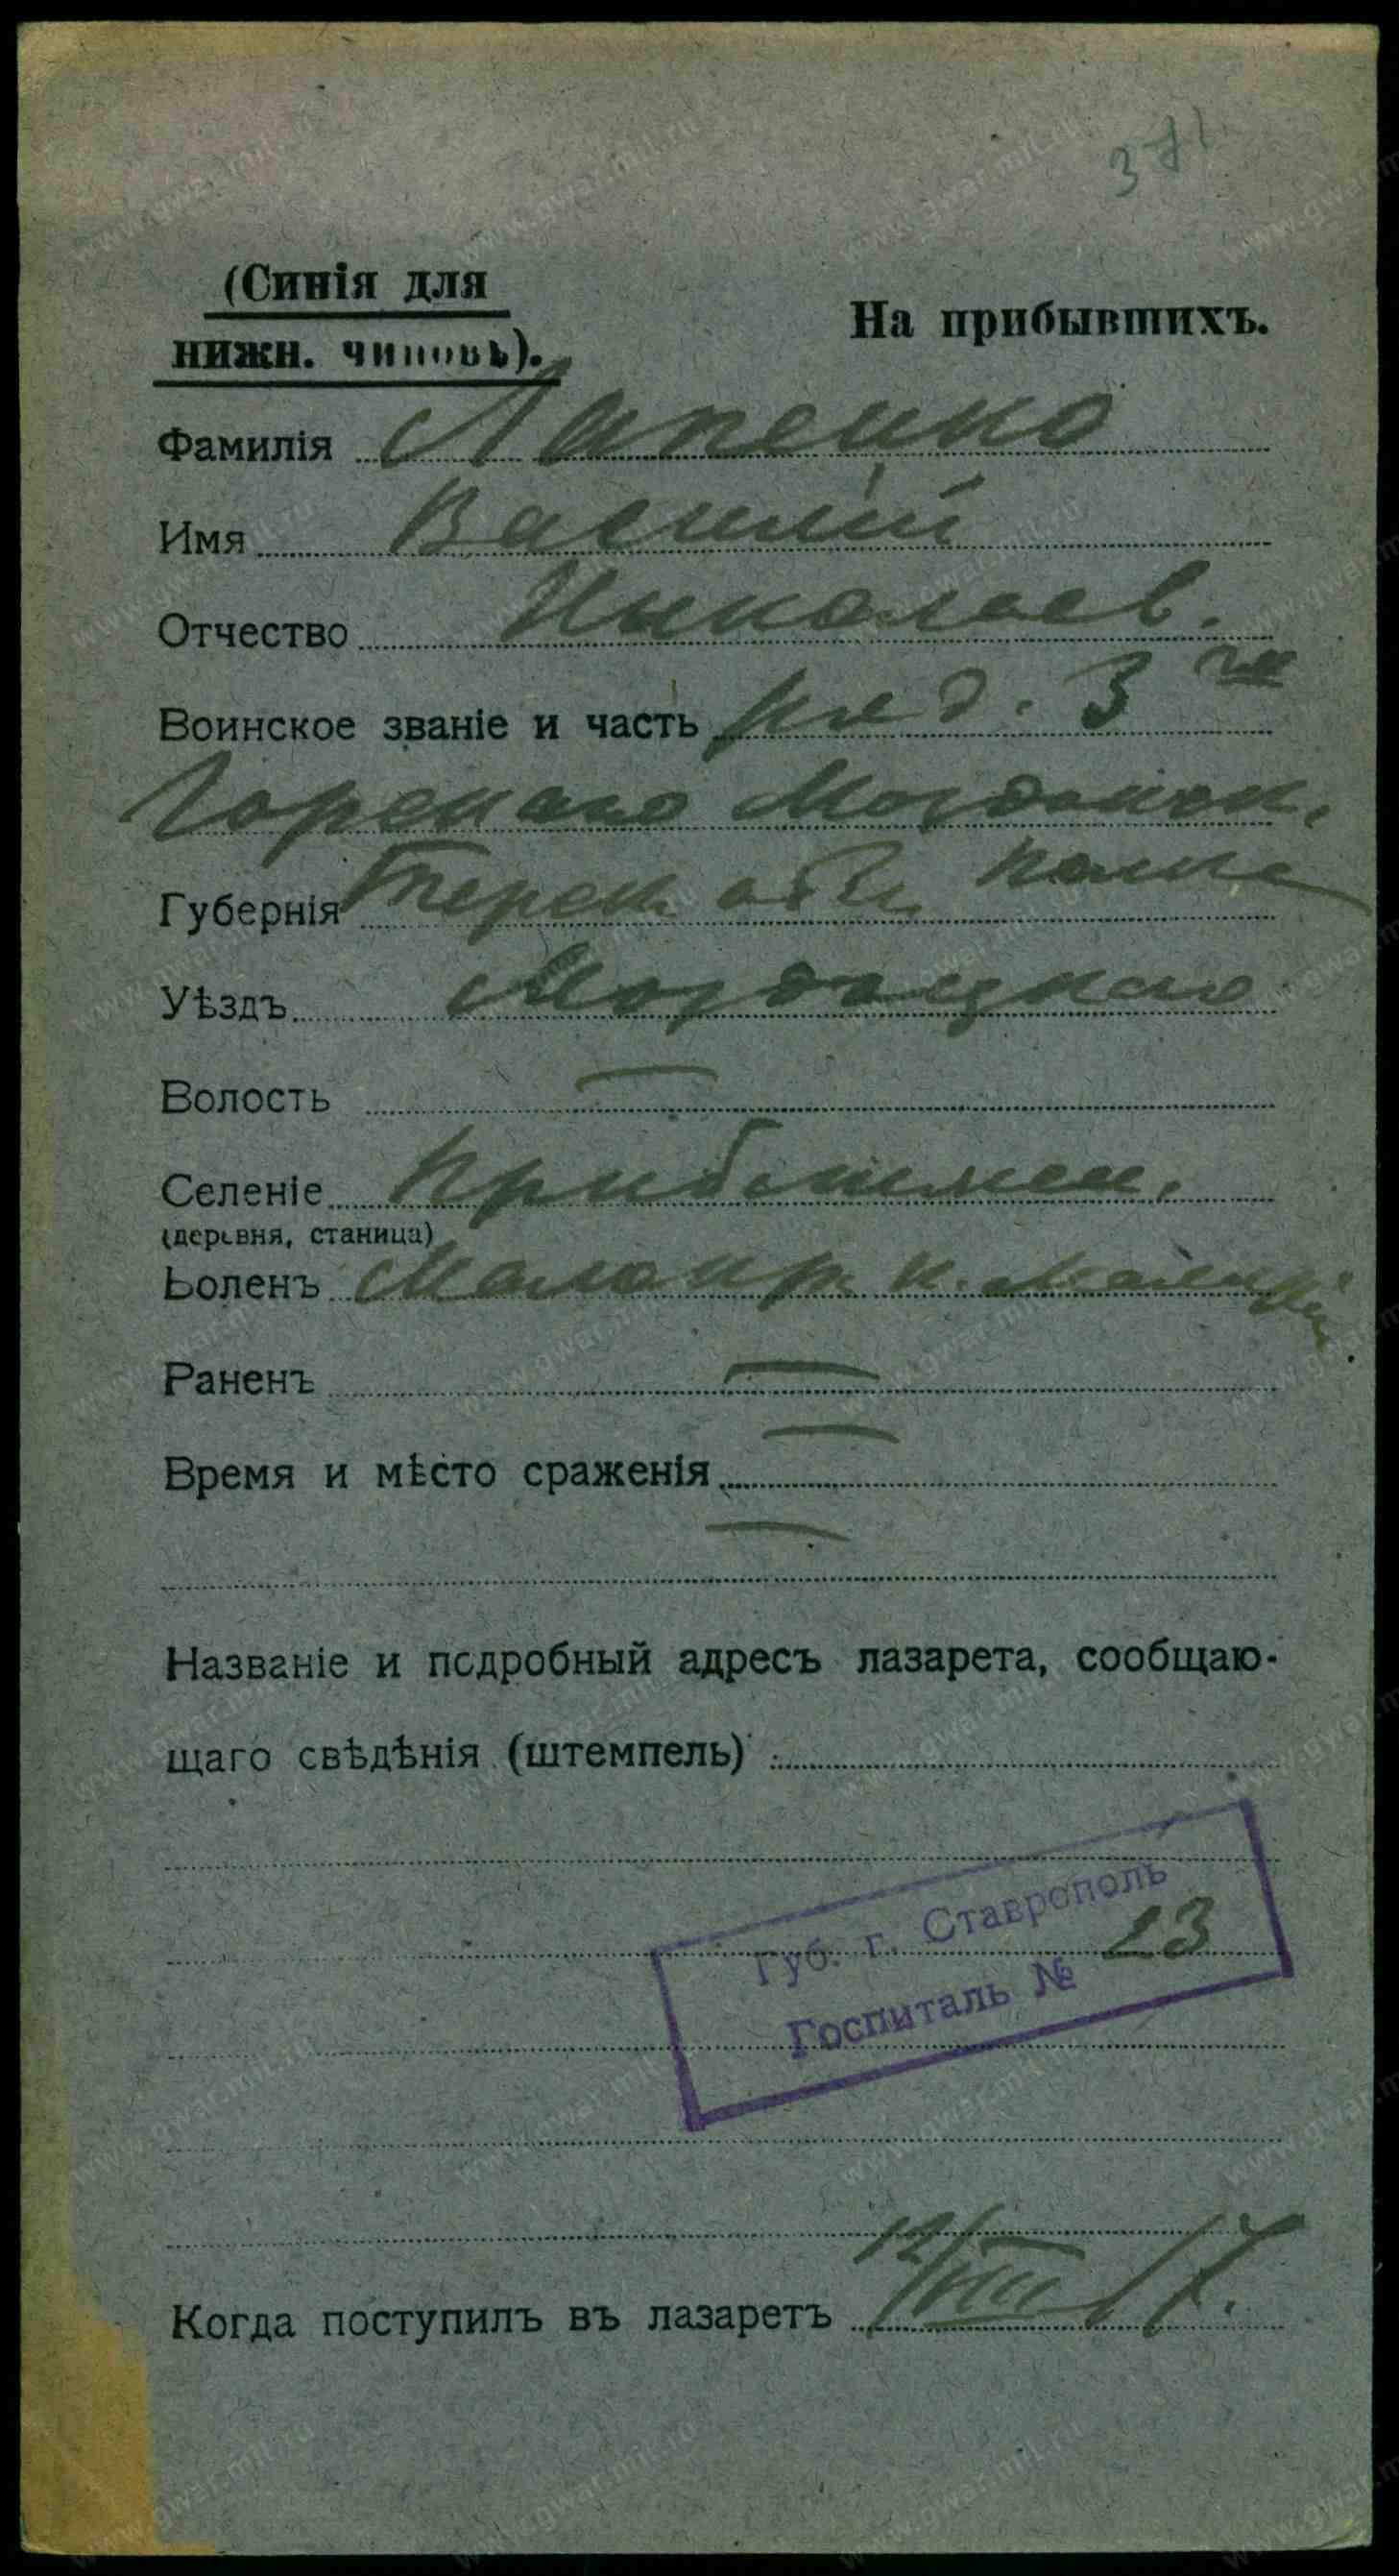 371
(Синія для
нижн. чиновъ).
На прибывшихъ.
Фамилія Лапенко
Имя Василий
Отчество Николаев.
Воинское званіе и часть ряд. 3 го
Горскаго Моздокск.
полка
Губернія Терск. обл.
Уѣздъ Моздокскаго
Волость —
Селеніе
(деревня, станица)
Боленъ
Раненъ —
Время и мѣсто сраженія —
—
Названіе и подробный адресъ лазарета, сообщаю-
щаго свѣдѣнія (штемпель)
Губ. г. Ставрополь
Госпиталь № 23
Когда поступилъ въ лазаретъ 12/VIII 17.